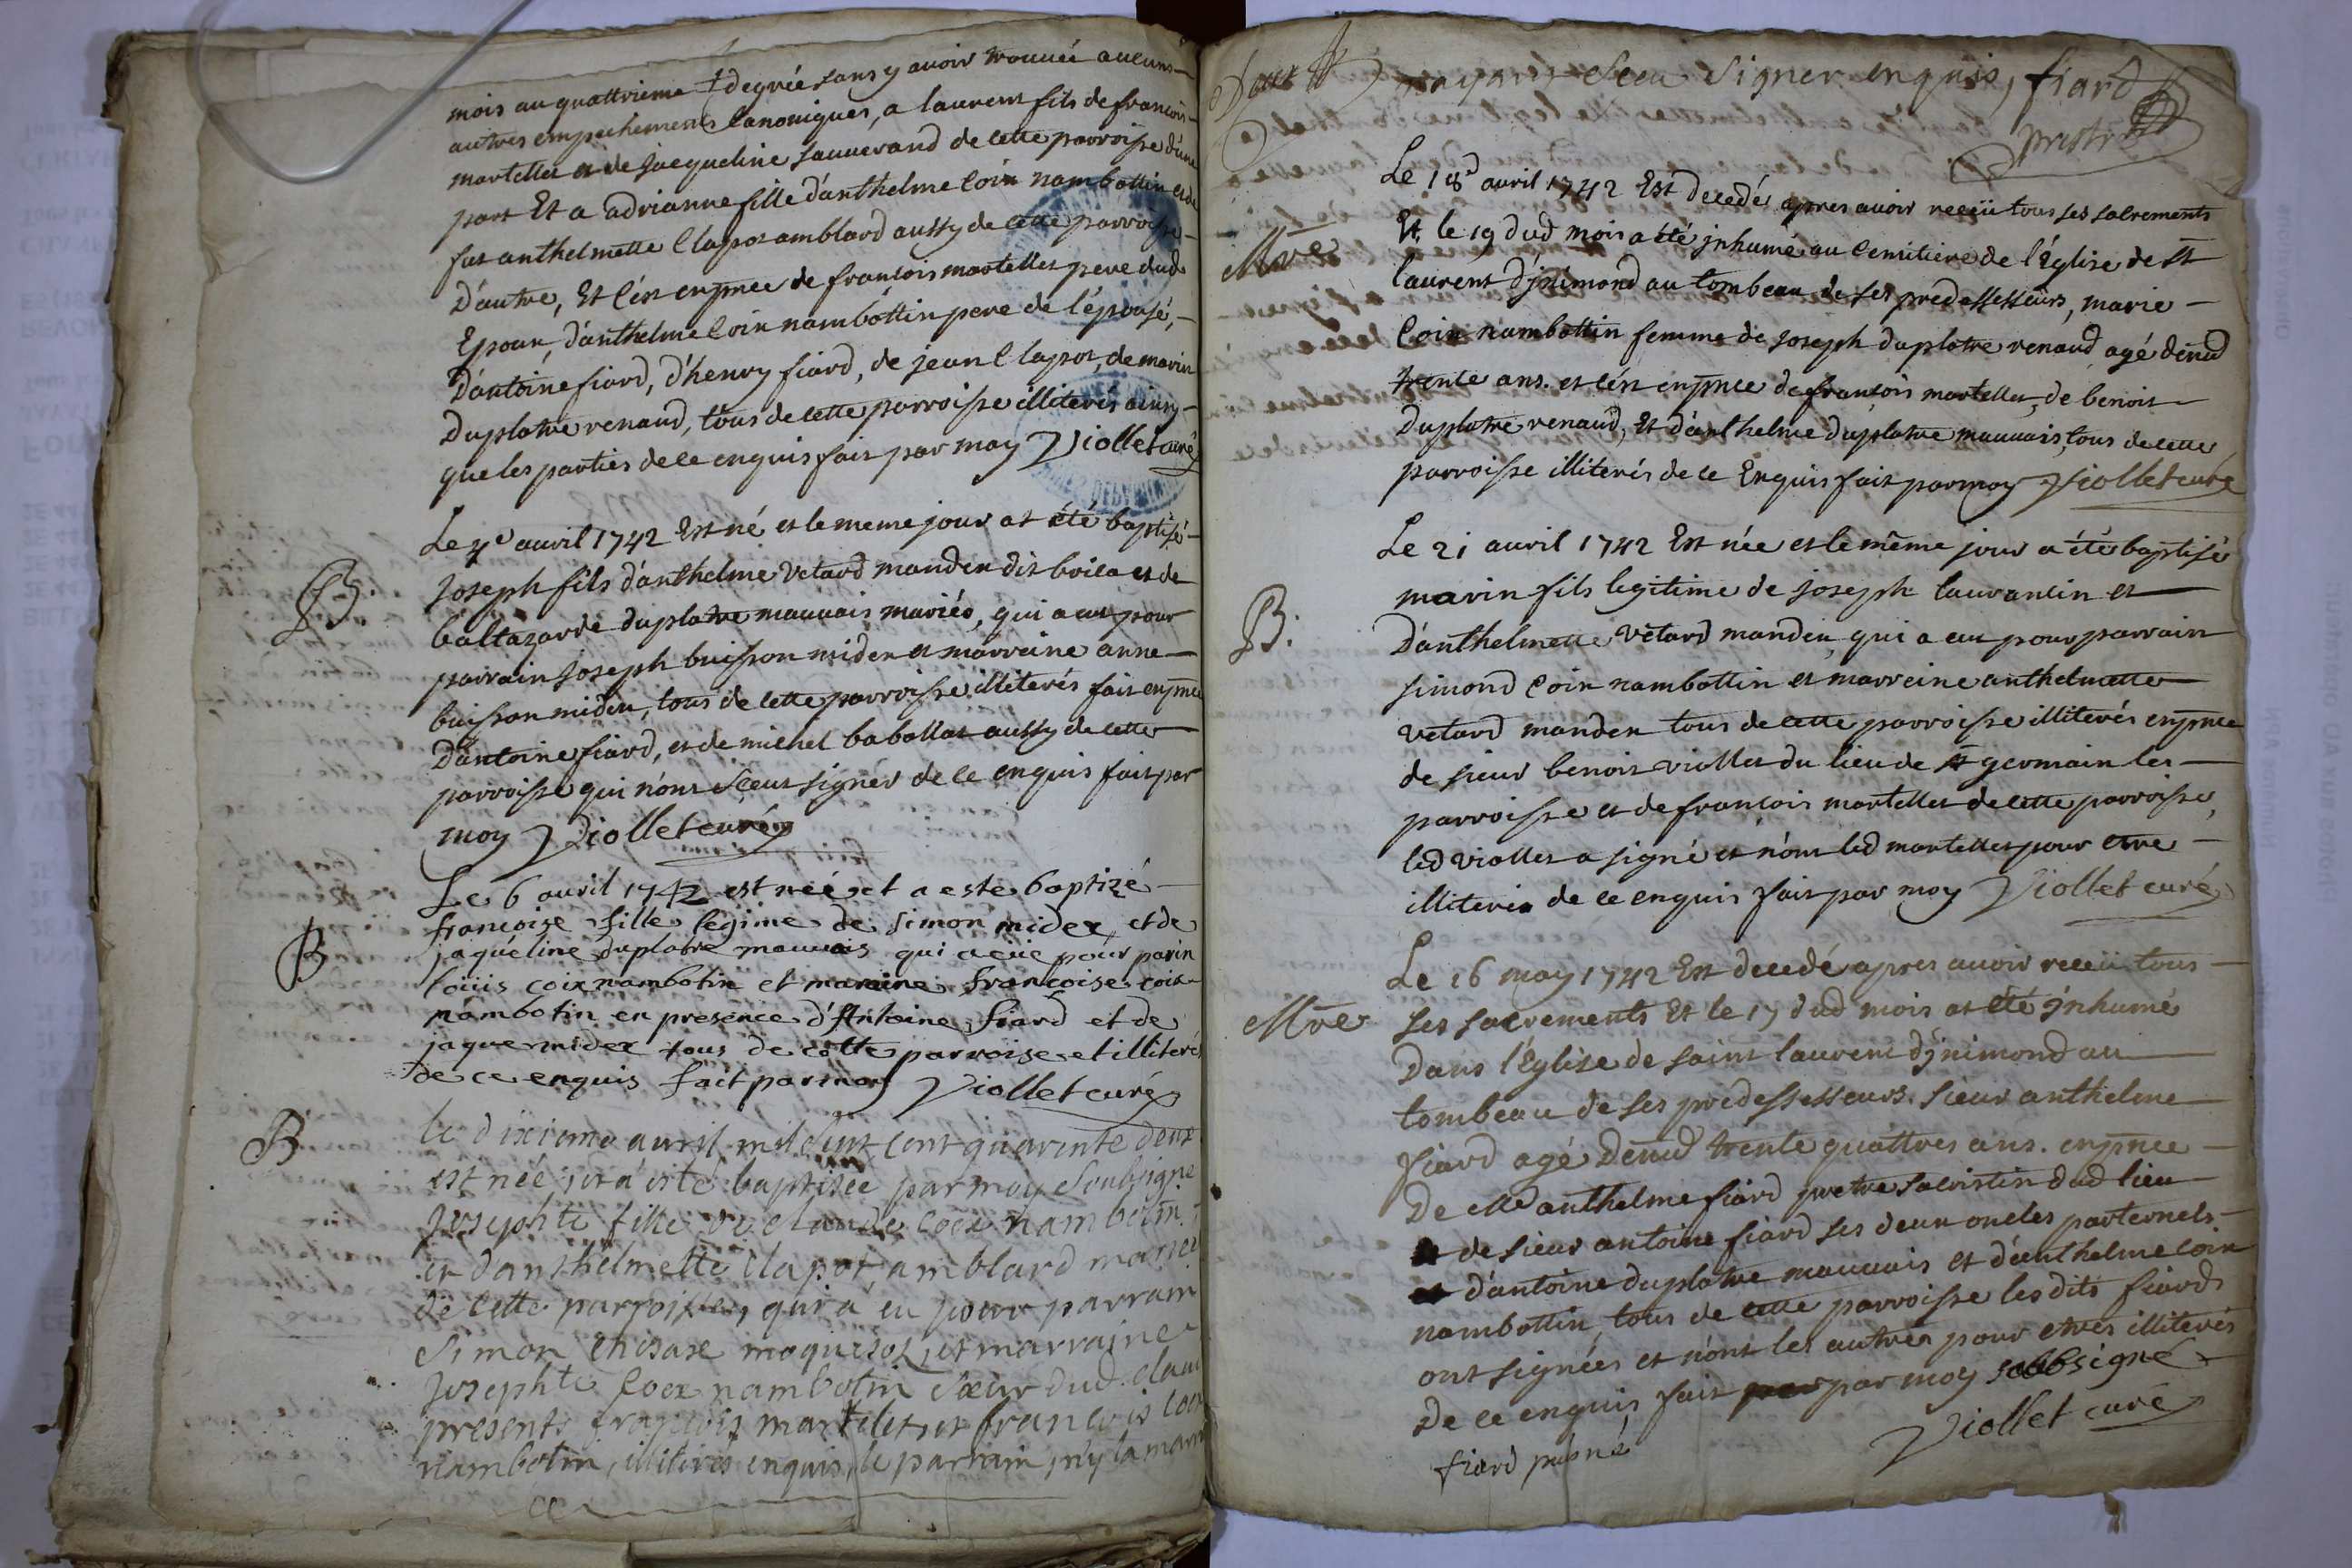 mois au quattrieme degrée sans y avoir trouvée aucuns
autres empechements Canoniques, a laurent fils de francois
martellet et de Jacqueline sauuerand de cette parroisse d'une
part Et a adrianne fille d'anthelme Coix nambottin et de
fut anthelmette Clapot amblard aussy de cette parroisse
D'autre, Et C'est enpnce de francois martellet pere dud
Epoux, d'anthelme Coix nambottin pere de l'épousé,
D'antoine fiard, d'henry fiard, de jean Clapot, de marin
Duplatre renaud, tous de cette parroisse illiterés ainsy
que les parties de ce enquis fait par moy Viollet curé
B.
Le 4e auvil 1742 Est né et le meme jour at été baptisé
Joseph fils d'anthelme Vetard mandex dit boila et de
baltazarde duplatre mauuais mariés, qui a eu pour
parrain Joseph buisson midex et marreine anne
buisson midex, tous de cette parroisse illiterés fait enpnce
D'antoine fiard, et de michel baballat aussy de cette
parroisse qui n'ont sceut signér de ce enquis fait par
moy Viollet curé
B
Le 6 auril 1742 est neé et a este baptizé
francoise fille legime de simon midex et de
jaquéline duplatre mauuais qui a eüe pour parin
loüis coix nambotin et maraine francoise coix
nambotin en presence d'Antoine fiard et de
jaque midex tous de cette parroise et illiterés
de ce enquis fait par moy Viollet curé
B
le dixieme auril mil sept cent quarente deux
est née, et a esté baptisée par moy Soubsigné
Josephte fille de claude coex nambotin
et d'anthelmette clapot, amblard mariez
de cette parroisse, qui a eu pour parrain
Simon et marraine
Josephte Coex nambotin sœur dud. clau
presents françois martelet, et francois coex
nambotin, illiterés enquis, le parrain, ny la marr
n'ayants Sceu Signer enquis, fiard
prestre
Mre
Le 18e avril 1742 Est decedé apres auoir receü tous ses sacrements
Et le 19 dud mois a été jnhumé au Cemitiere de l'Église de St
laurent d'jnimond au tombeau de ses predassesseurs, marie
Coix nambottin femme de Joseph duplatre renaud agé denud
trente ans. et c'est enpnce de francois martellet, de benoit
Duplatre renaud, Et d'anthelme duplatre mauuais, tous de cette
parroisse illiterés de ce Enquis fait par moy Viollet curé
B.
Le 21 auvil 1742 Est née et le même jour a été baptisé
marin fils legitime de joseph laurancin et
D'anthelmette Vetard mandex, qui a eu pour parrain
simond Coix nambottin et marreine anthelmette
vetard mandex tous de cette parroisse illiterés enpnce
de sieur benoit viollet du lieu de St germain les
parroisse et de francois martellet de cette parroisse,
led viollet a signé et n'ont led martellet pour etre
illiteré de ce enquis fait par moy Viollet curé
Mre
Le 16 may 1742 Est decedé apres auoir receü tous
ses sacrements Et le 17 dud mois at été jnhumé
Dans l'Eglise de saint laurent d'jnimond au
tombeau de ses prédessesseurs. sieur anthelme
fiard agé Denud trente quattres ans. enpnce
De Mre anthelme fiard pretre sacristin dud lieu
et de sieur antoine fiard ses deux oncles parternels
et d'antoine duplatre mauuais et d'anthelme Coix
nambottin, tous de cette parroisse les dits fiards
ont signées et n'ont les autres pour etres illiterés
De ce enquis fait par moy soubsigné
Viollet curé
fiard puisné